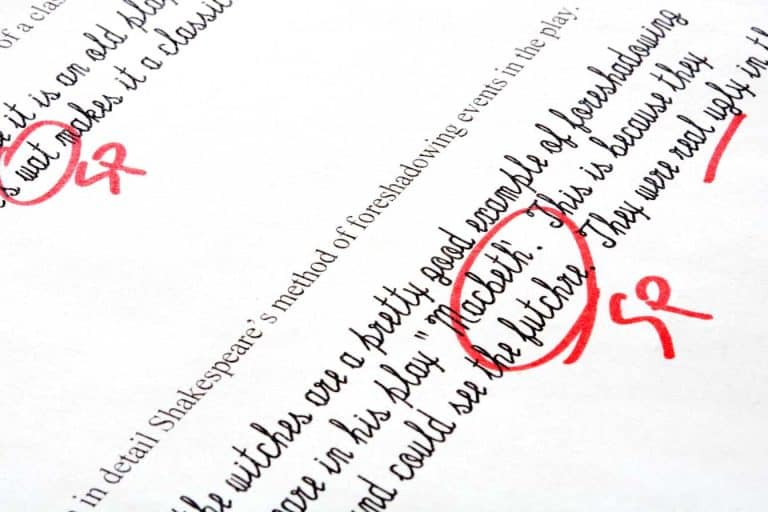 of a clas
e it is an old play
s wat makes it a classic
in detail Shakespeare's method of foreshadowing events in the play.
he witches are a pretty good example of foreshadowing
are in his play "Macbeth". This is because they
nd could see the futchre. They were real ugly in th